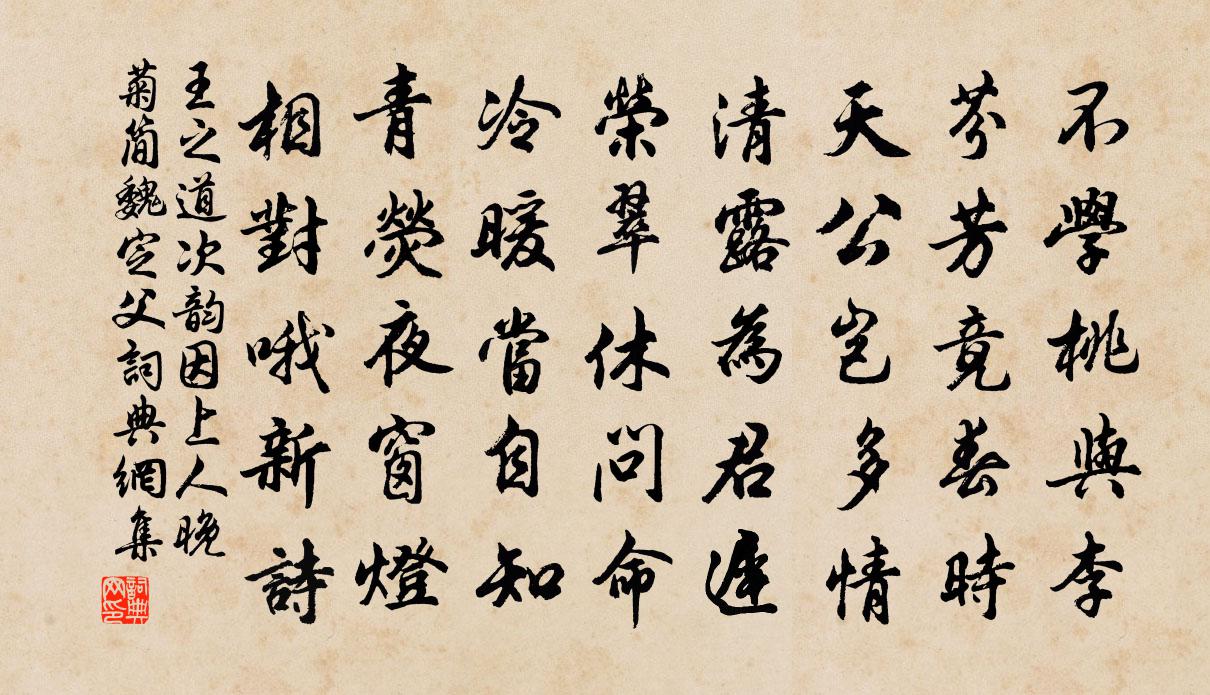 不學桃與李
芬芳竟春時
天公豈多情
清露為君遲
榮翠休問命
冷暖當自知
青熒夜窗燈
相對哦新詩
王之道次韵因上人晚
菊簡魏定父詞典網集
詞典网印